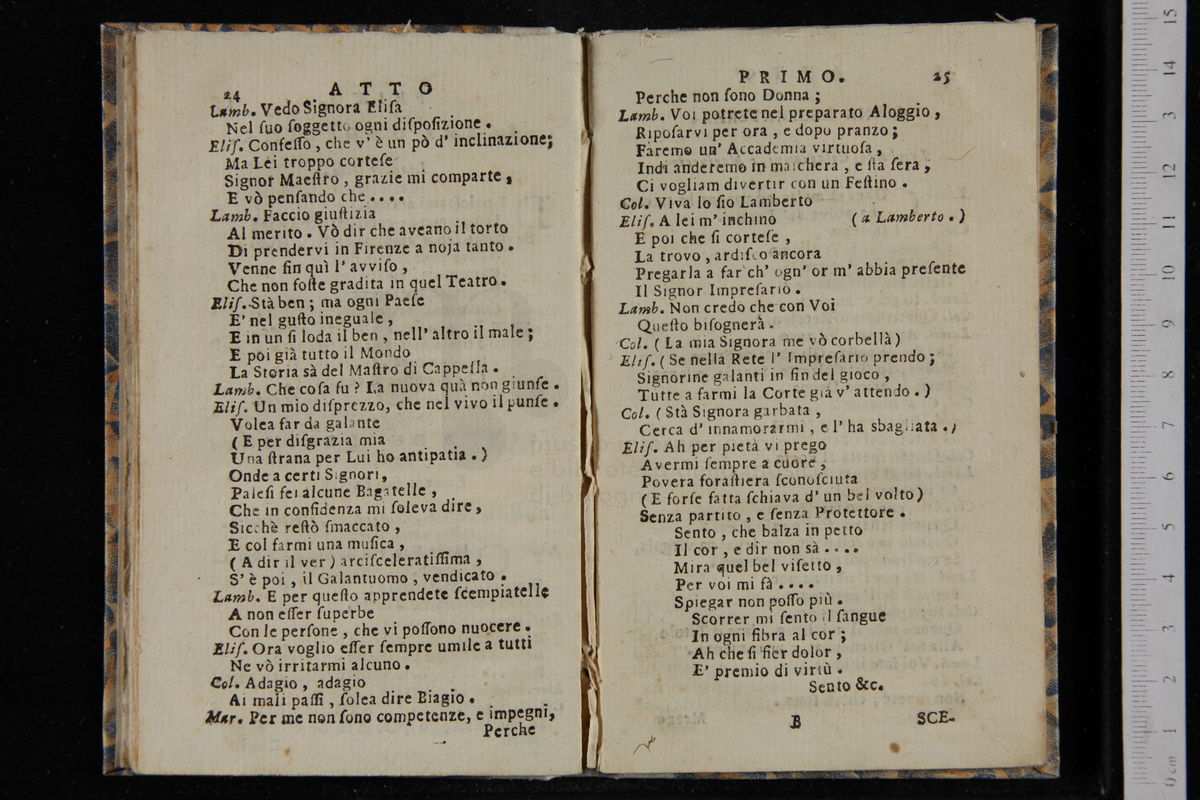 24 ATTO
Lamb. Vedo Signora Eliſa
Nel ſuo ſoggetto ogni diſpoſizione.
Eliſ. Confeſſo, che v' è un pò d' inclinazione;
Ma Lei troppo corteſe
Signor Maeſtro, grazie mi comparte,
E vò penſando che....
Lamb. Faccio giuſtizia
Al merito. Vò dir che aveano il torto
Di prendervi in Firenze a noja tanto.
Venne ſin quì l' avviſo,
Che non foſte gradita in quel Teatro.
Eliſ. Stà ben; ma ogni Paeſe
E' nel guſto ineguale,
E in un ſi loda il ben, nell' altro il male;
E poi già tutto il Mondo
La Storia sà del Maſtro di Cappella.
Lamb. Che coſa fu? La nuova quà non giunſe.
Eliſ. Un mio diſprezzo, che nel vivo il punſe.
Volea far da galante
(E per diſgrazia mia
Una ſtrana per Lui ho antipatia.)
Onde a certi Signori,
Paleſi fei alcune Bagatelle,
Che in confidenza mi ſoleva dire,
Sicchè reſtò ſmaccato,
E col farmi una muſica,
(A dir il ver) arciſceleratiſſima,
S' è poi, il Galantuomo, vendicato.
Lamb. E per queſto apprendete ſcempiatelle
A non eſſer ſuperbe
Con le perſone, che vi poſſono nuocere.
Eliſ. Ora voglio eſſer ſempre umile a tutti
Ne vò irritarmi alcuno.
Col. Adagio, adagio
Ai mali paſſi, ſolea dire Biagio.
Mar. Per me non ſono competenze, e impegni,
Perche
PRIMO. 25
Perche non ſono Donna;
Lamb. Voi potrete nel preparato Aloggio,
Ripoſarvi per ora, e dopo pranzo;
Faremo un' Accademia virtuoſa,
Indi anderemo in maſchera, e ſta ſera,
Ci vogliam divertir con un Feſtino.
Col. Viva lo ſio Lamberto
Eliſ. A lei m' inchino (a Lamberto.)
E poi che ſi corteſe,
La trovo, ardiſco ancora
Pregarla a far ch' ogn' or m' abbia preſente
Il Signor Impreſario.
Lamb. Non credo che con Voi
Queſto biſognerà.
Col. (La mia Signora me vò corbellà)
Eliſ. (Se nella Rete l' Impreſario prendo;
Signorine galanti in fin del gioco,
Tutte a farmi la Corte già v' attendo.)
Col. (Stà Signora garbata,
Cerca d' innamorarmi, e l' ha sbagliata.)
Eliſ. Ah per pietà vi prego
Avermi ſempre a cuore,
Povera foraſtiera ſconoſciuta
(E forſe fatta ſchiava d' un bel volto)
Senza partito, e ſenza Protettore.
Sento, che balza in petto
Il cor, e dir non sà....
Mira quel bel viſetto,
Per voi mi fà....
Spiegar non poſſo più.
Scorrer mi ſento il ſangue
In ogni fibra al cor;
Ah che ſi fier dolor,
E' premio di virtù.
Sento &c.
B SCE-
15
14
13
12
11
10
9
8
7
6
5
4
3
2
1
0 cm